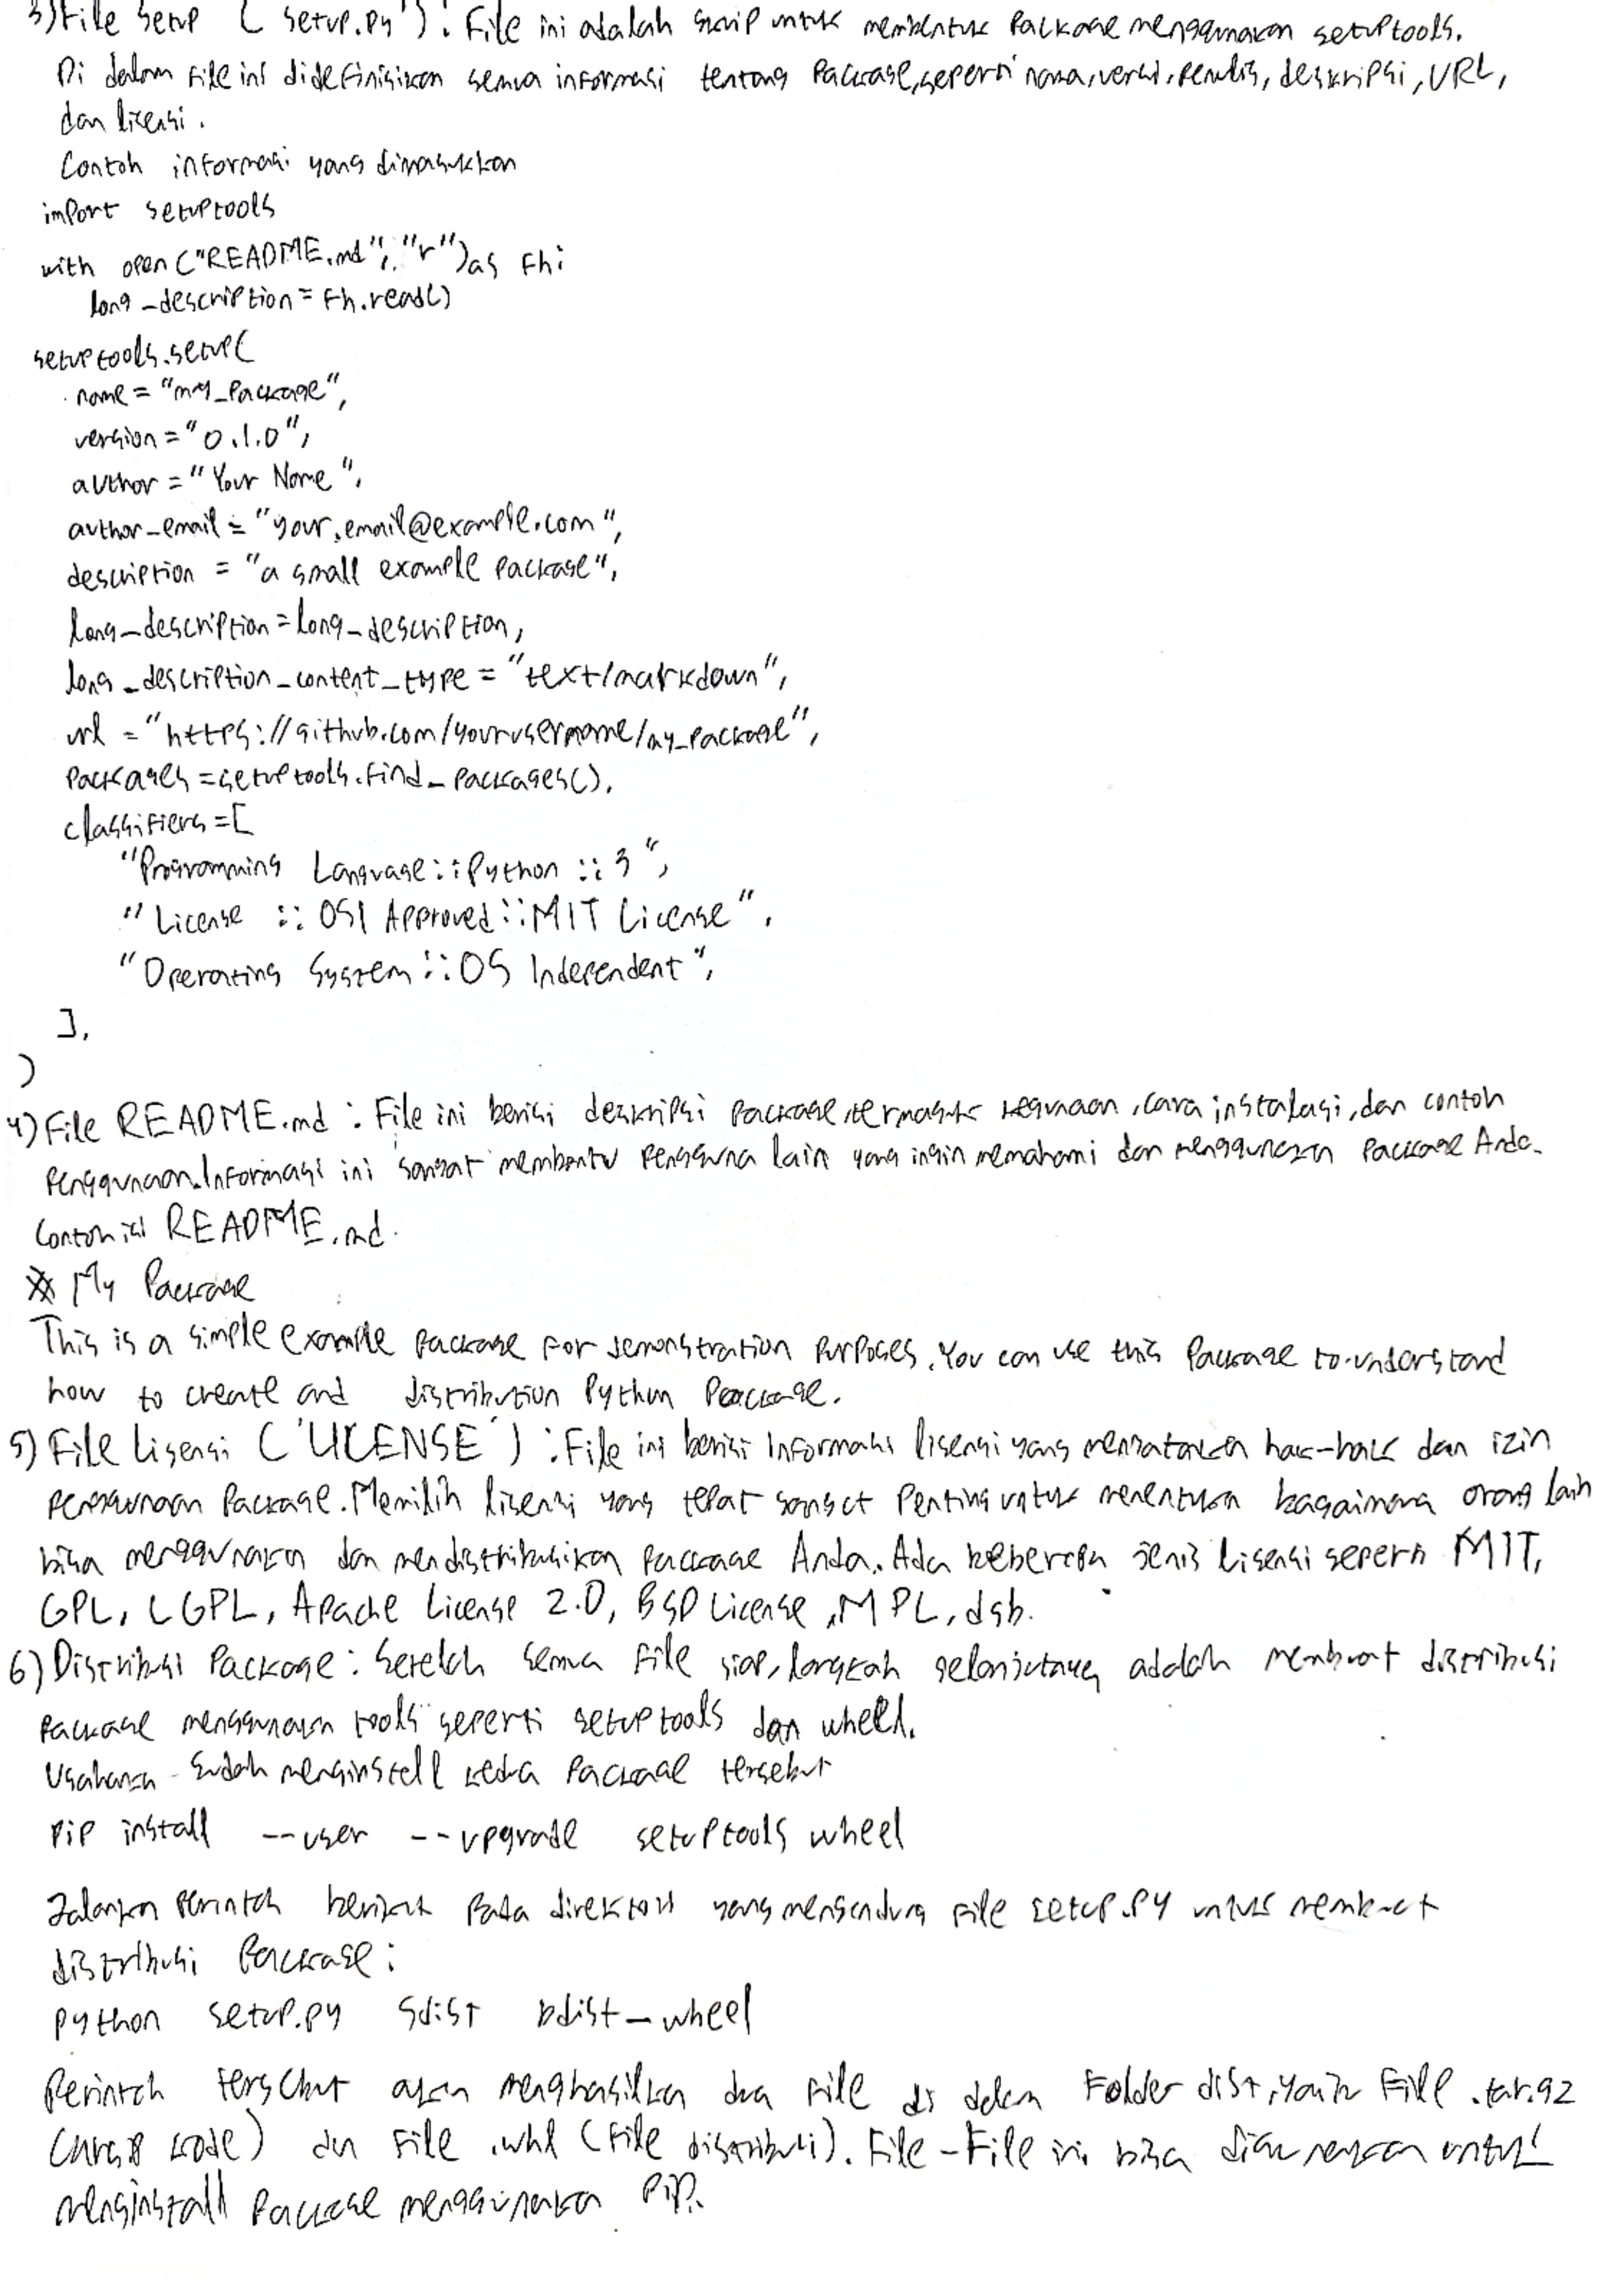 3) File Setup ('setup.py'): File ini adalah skrip untuk membentuk Package menggunakan setuptools.
Di dalam file ini didefinisikan semua informasi tentang Package, seperti nama, versi, penulis, deskripsi, URL,
dan licensi.
Contoh informasi yang dimasukkan
import setuptools
with open("README.md", "r") as fh:
long_description = fh.read()
setuptools.setup(
name = "my_package",
version = "0.1.0",
author = "Your Name",
author_email = "your.email@example.com",
description = "a small example package",
long_description = long_description,
long_description_content_type = "text/markdown",
url = "https://github.com/yourusername/my_package",
packages = setuptools.find_packages(),
classifiers = [
"Programming Language :: Python :: 3",
"License :: OSI Approved :: MIT License",
"Operating System :: OS Independent",
],
)
4) File README.md : File ini berisi deskripsi package, termasuk kegunaan, cara instalasi, dan contoh
penggunaan. Informasi ini sangat membantu pengguna lain yang ingin memahami dan menggunakan package Anda.
Contoh isi README.md.
# My Package
This is a simple example package for demonstration purposes. You can use this package to understand
how to create and distribution Python Package.
5) File lisensi ('LICENSE') : File ini berisi informasi lisensi yang menyatakan hak-hak dan izin
penggunaan package. Memilih lisensi yang tepat sangat penting untuk menentukan bagaimana orang lain
bisa menggunakan dan mendistribusikan package Anda. Ada beberapa jenis lisensi seperti MIT,
GPL, LGPL, Apache License 2.0, BSD License, MPL, dsb.
6) Distribusi Package : Setelah semua file siap, langkah selanjutnya adalah membuat distribusi
package menggunakan tools seperti setuptools dan wheel.
Usahakan sudah menginstall kedua package tersebut
pip install --user --upgrade setuptools wheel
Jalankan perintah berikut pada direktori yang mengandung file setup.py untuk membuat
distribusi package :
python setup.py sdist bdist_wheel
Perintah tersebut akan menghasilkan dua file di dalam folder dist, yaitu file .tar.gz
(arsip kode) dan file .whl (file distribusi). File-File ini bisa digunakan untuk
menginstall package menggunakan pip.